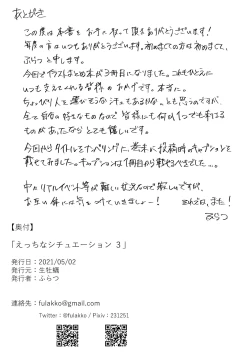 あとがき
この度は本書をお手に取って頂きありがとうございます!
毎度の方はいつもありがとうございます。初めましての方は初めまして、
ふらつと申します。
今回でイラストまとめ本が3冊目になりました。これもひとえに
いつも支えてくれる皆様のおかげです。本当に。
ちょっぴり人を選びそうなシチュもあるかな、とも思うのですが、
全て自分の好きなものなので皆様にも何か1つでも刺さる
ものがあったならとても嬉しいです。
今回からタイトルをナンバリングに、巻末に投稿時のキャプションを
載せてみました。キャプションは1冊目から載せるべきでした…。
中々リアルイベント等が難しい状況なので厳しいですが、
お互い体には気をつけていきましょー! それではまた!
ふらつ
【奥付】
「えっちなシチュエーション 3」
発行日:2021/05/02
発行元:生牡蠣
発行者:ふらつ
連絡先:fulakko@gmail.com
Twitter:@fulakko / Pixiv:231251